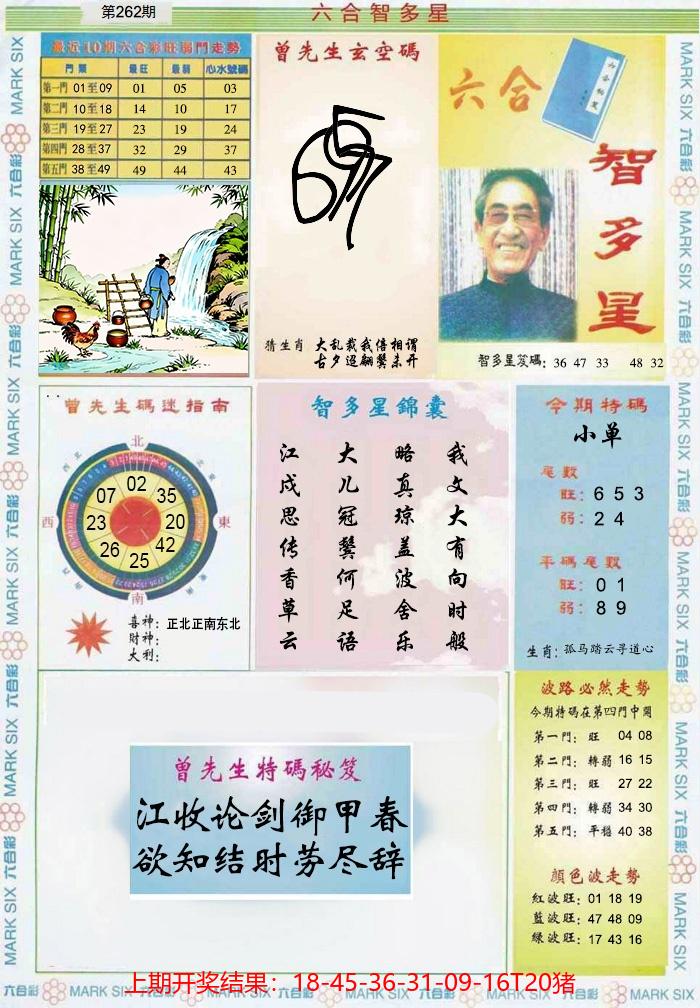 第262期
六合智多星
最近10期六合彩旺弱門走勢
門類 最旺 最弱 心水號碼
第一門 01至09 01 05 03
第二門 10至18 14 10 17
第三門 19至27 23 19 24
第四門 28至37 32 29 37
第五門 38至49 49 44 43
曾先生玄空碼
猜生肖 大乱裁我倍相谓
古夕迢翩鬓未开
六合
智多星
智多星笈碼: 36 47 33 48 32
曾先生碼迷指南
北
西
東
南
02
35
20
42
25
26
23
07
喜神: 正北正南东北
財神:
大利:
智多星錦囊
江 大 略 我
戍 儿 真 文
思 冠 琼 大
传 鬓 盖 有
香 何 波 向
草 足 舍 时
云 语 乐 般
今期特碼
小单
尾數
旺: 6 5 3
弱: 2 4
平碼尾數
旺: 0 1
弱: 8 9
生肖: 孤马踏云寻道心
曾先生特碼秘笈
江收论剑御甲春
欲知结时劳尽辞
波路必然走勢
今期特碼在第四門中開
第一門: 旺 04 08
第二門: 轉弱 16 15
第三門: 旺 27 22
第四門: 轉弱 34 30
第五門: 平穩 40 38
顏色波走勢
紅波旺: 01 18 19
藍波旺: 47 48 09
綠波旺: 17 43 16
上期开奖结果：18-45-36-31-09-16T20猪
六合彩 MARK SIX 六合彩 MARK SIX 六合彩 MARK SIX 六合彩 MARK SIX 六合彩